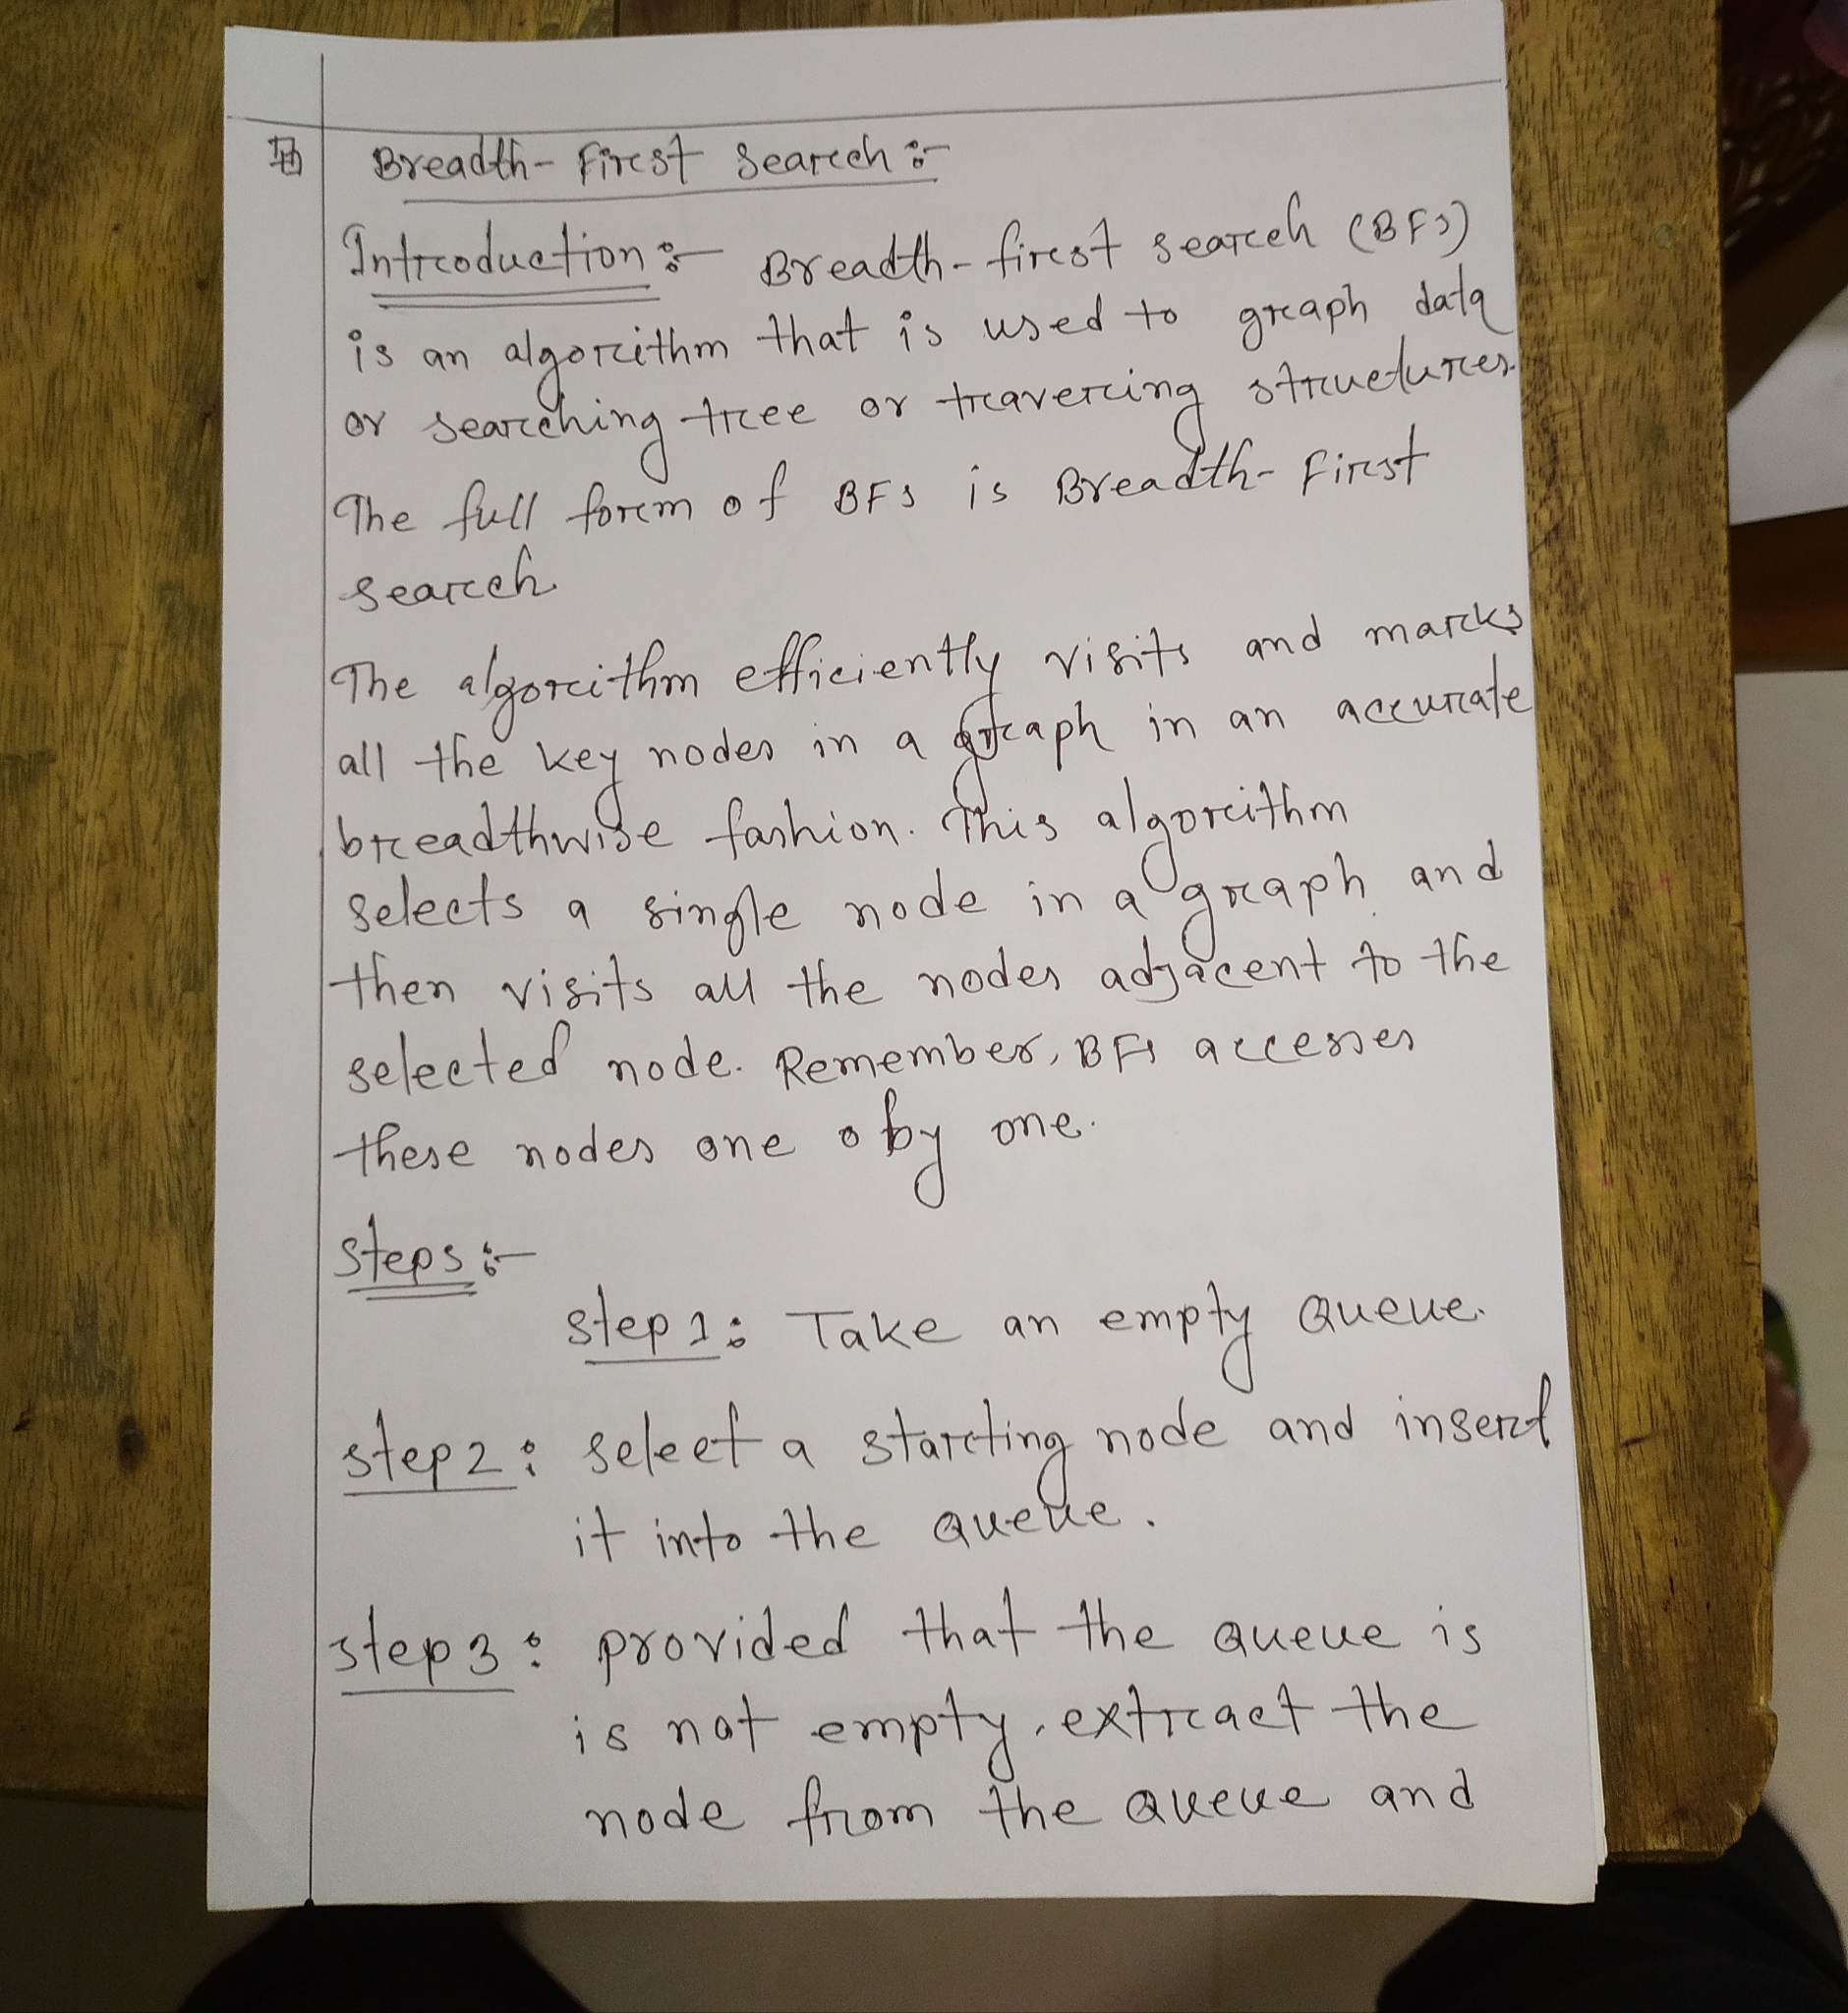 Breadth-First Search :-
Introduction :- Breadth-first search (BFS)
is an algorithm that is used to graph data
or searching tree or travercing structures.
The full form of BFS is Breadth-First
search.
The algorithm efficiently visits and marks
all the key nodes in a graph in an accurate
breadthwise fashion. This algorithm
selects a single node in a graph and
then visits all the nodes adjacent to the
selected node. Remember, BFS accesses
these nodes one by one.
Steps :-
Step 1: Take an empty Queue.
Step 2: select a starting node and insert
it into the Queue.
Step 3: provided that the Queue is
is not empty, extract the
node from the Queue and